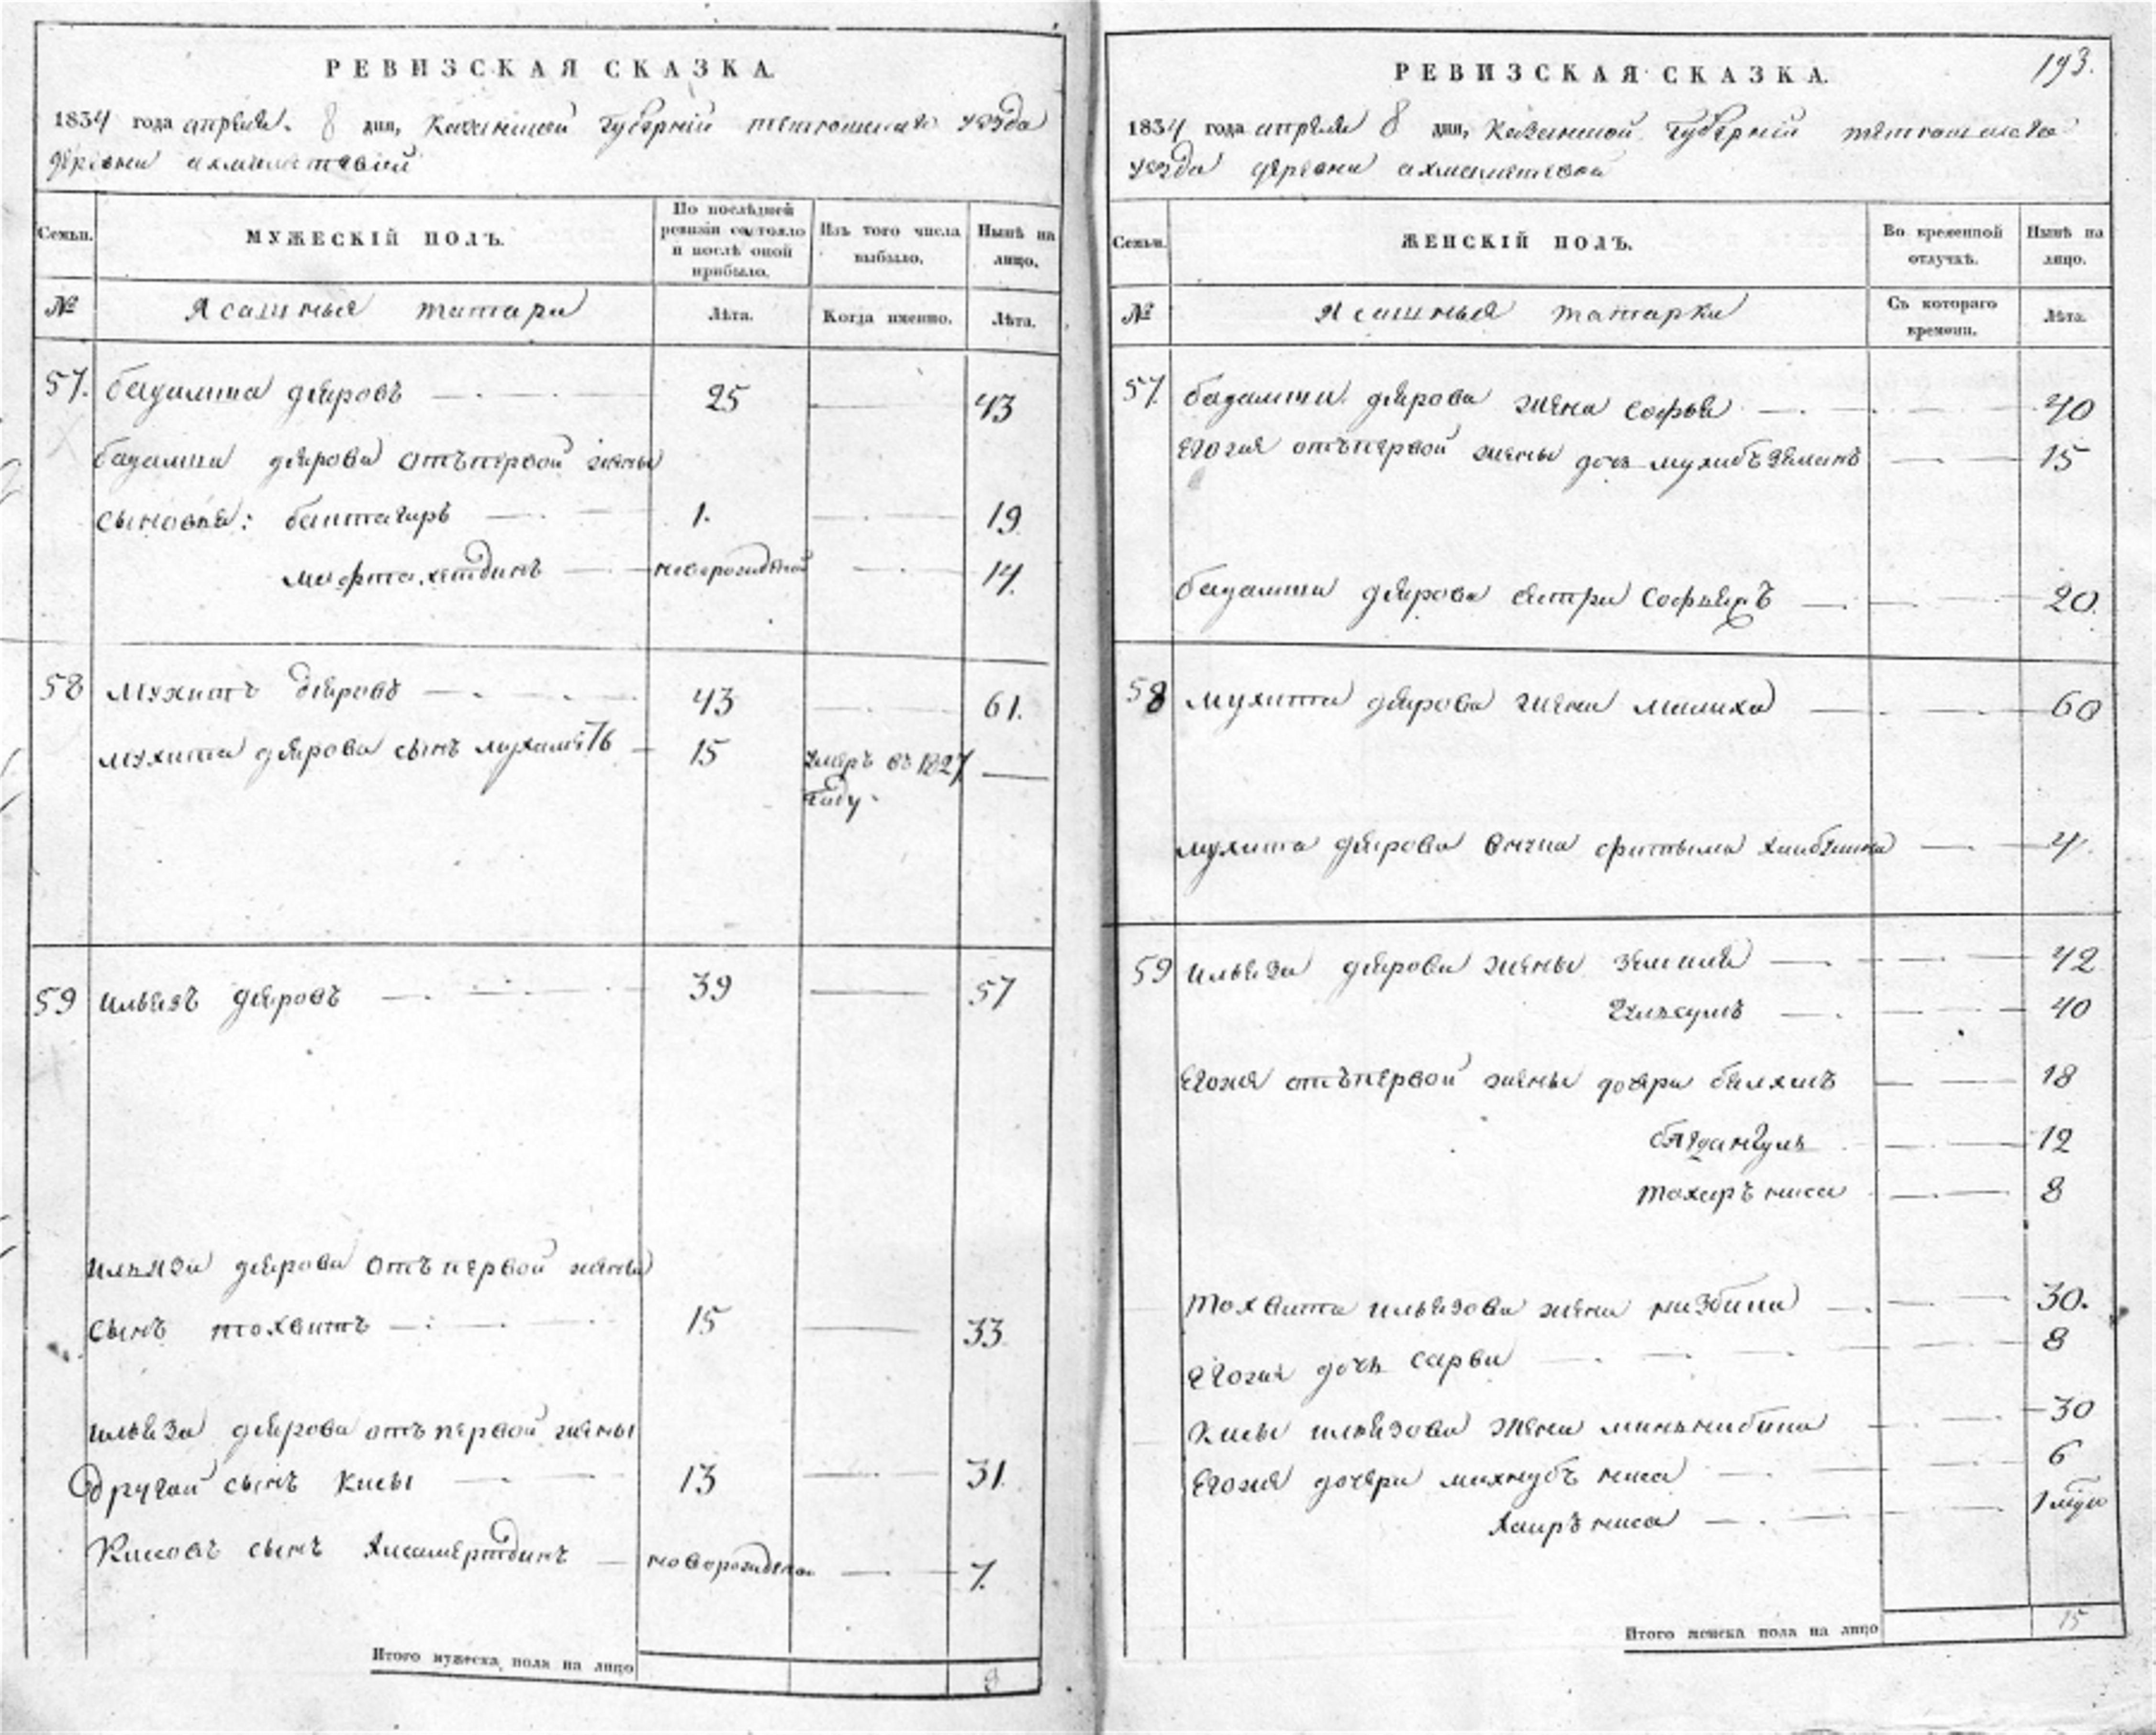 РЕВИЗСКАЯ СКАЗКА.
1834 года апреля 8 дня, Казанской губернїи тетюшскаго уезда
деревни ахмаметевой
Семьи.
МУЖЕСКІЙ ПОЛЪ.
По послѣдней ревизіи состояло и послѣ оной прибыло.
Изъ того числа выбыло.
Нынѣ на лицо.
№
Ясашныя татара
Лѣта.
Когда именно.
Лѣта.
57. бадамша деяровъ 25 43
бадамши деярова отъ первой жены
сыновья: баштагиръ 1. 19
мифтахетдинъ новорожденой 14.
58 мухитъ деяровъ 43 61.
мухита деярова сынъ 15 умеръ въ 1827
году.
59 ильязъ деяровъ 39 57
ильяза деярова отъ первой жены
сынъ тохватъ 15 33
ильяза деярова отъ первой жены
другой сынъ Кисы 13 31.
сынъ новорожденой 7.
Итого мужеска пола на лицо 8
РЕВИЗСКАЯ СКАЗКА.
193.
1834 года апреля 8 дня, Казанской губернїи тетюшскаго
уезда деревни ахмаметевой
Семьи.
ЖЕНСКІЙ ПОЛЪ.
Во временной отлучкѣ.
Нынѣ на лицо.
№
Ясашныя татарки
Съ котораго времени.
Лѣта.
57. бадамши деярова жена софья 40
Егожа отъ первой жены дочь 15
бадамши деярова сестра 20.
58 мухита деярова жена малиха 60
мухита деярова фатыма 4.
59 ильяза деярова жены земиля 42
гульсумъ 40
Егожа отъ первой жены дочери 18
бядангуль 12
тохаръ ниса 8
тохвата ильязова жена 30.
Егожа дочь сарви 8
Кисы ильязова жена 30
Егожа дочери махнубъ ниса 6
хаиръ ниса 1
Итого женска пола на лицо 15